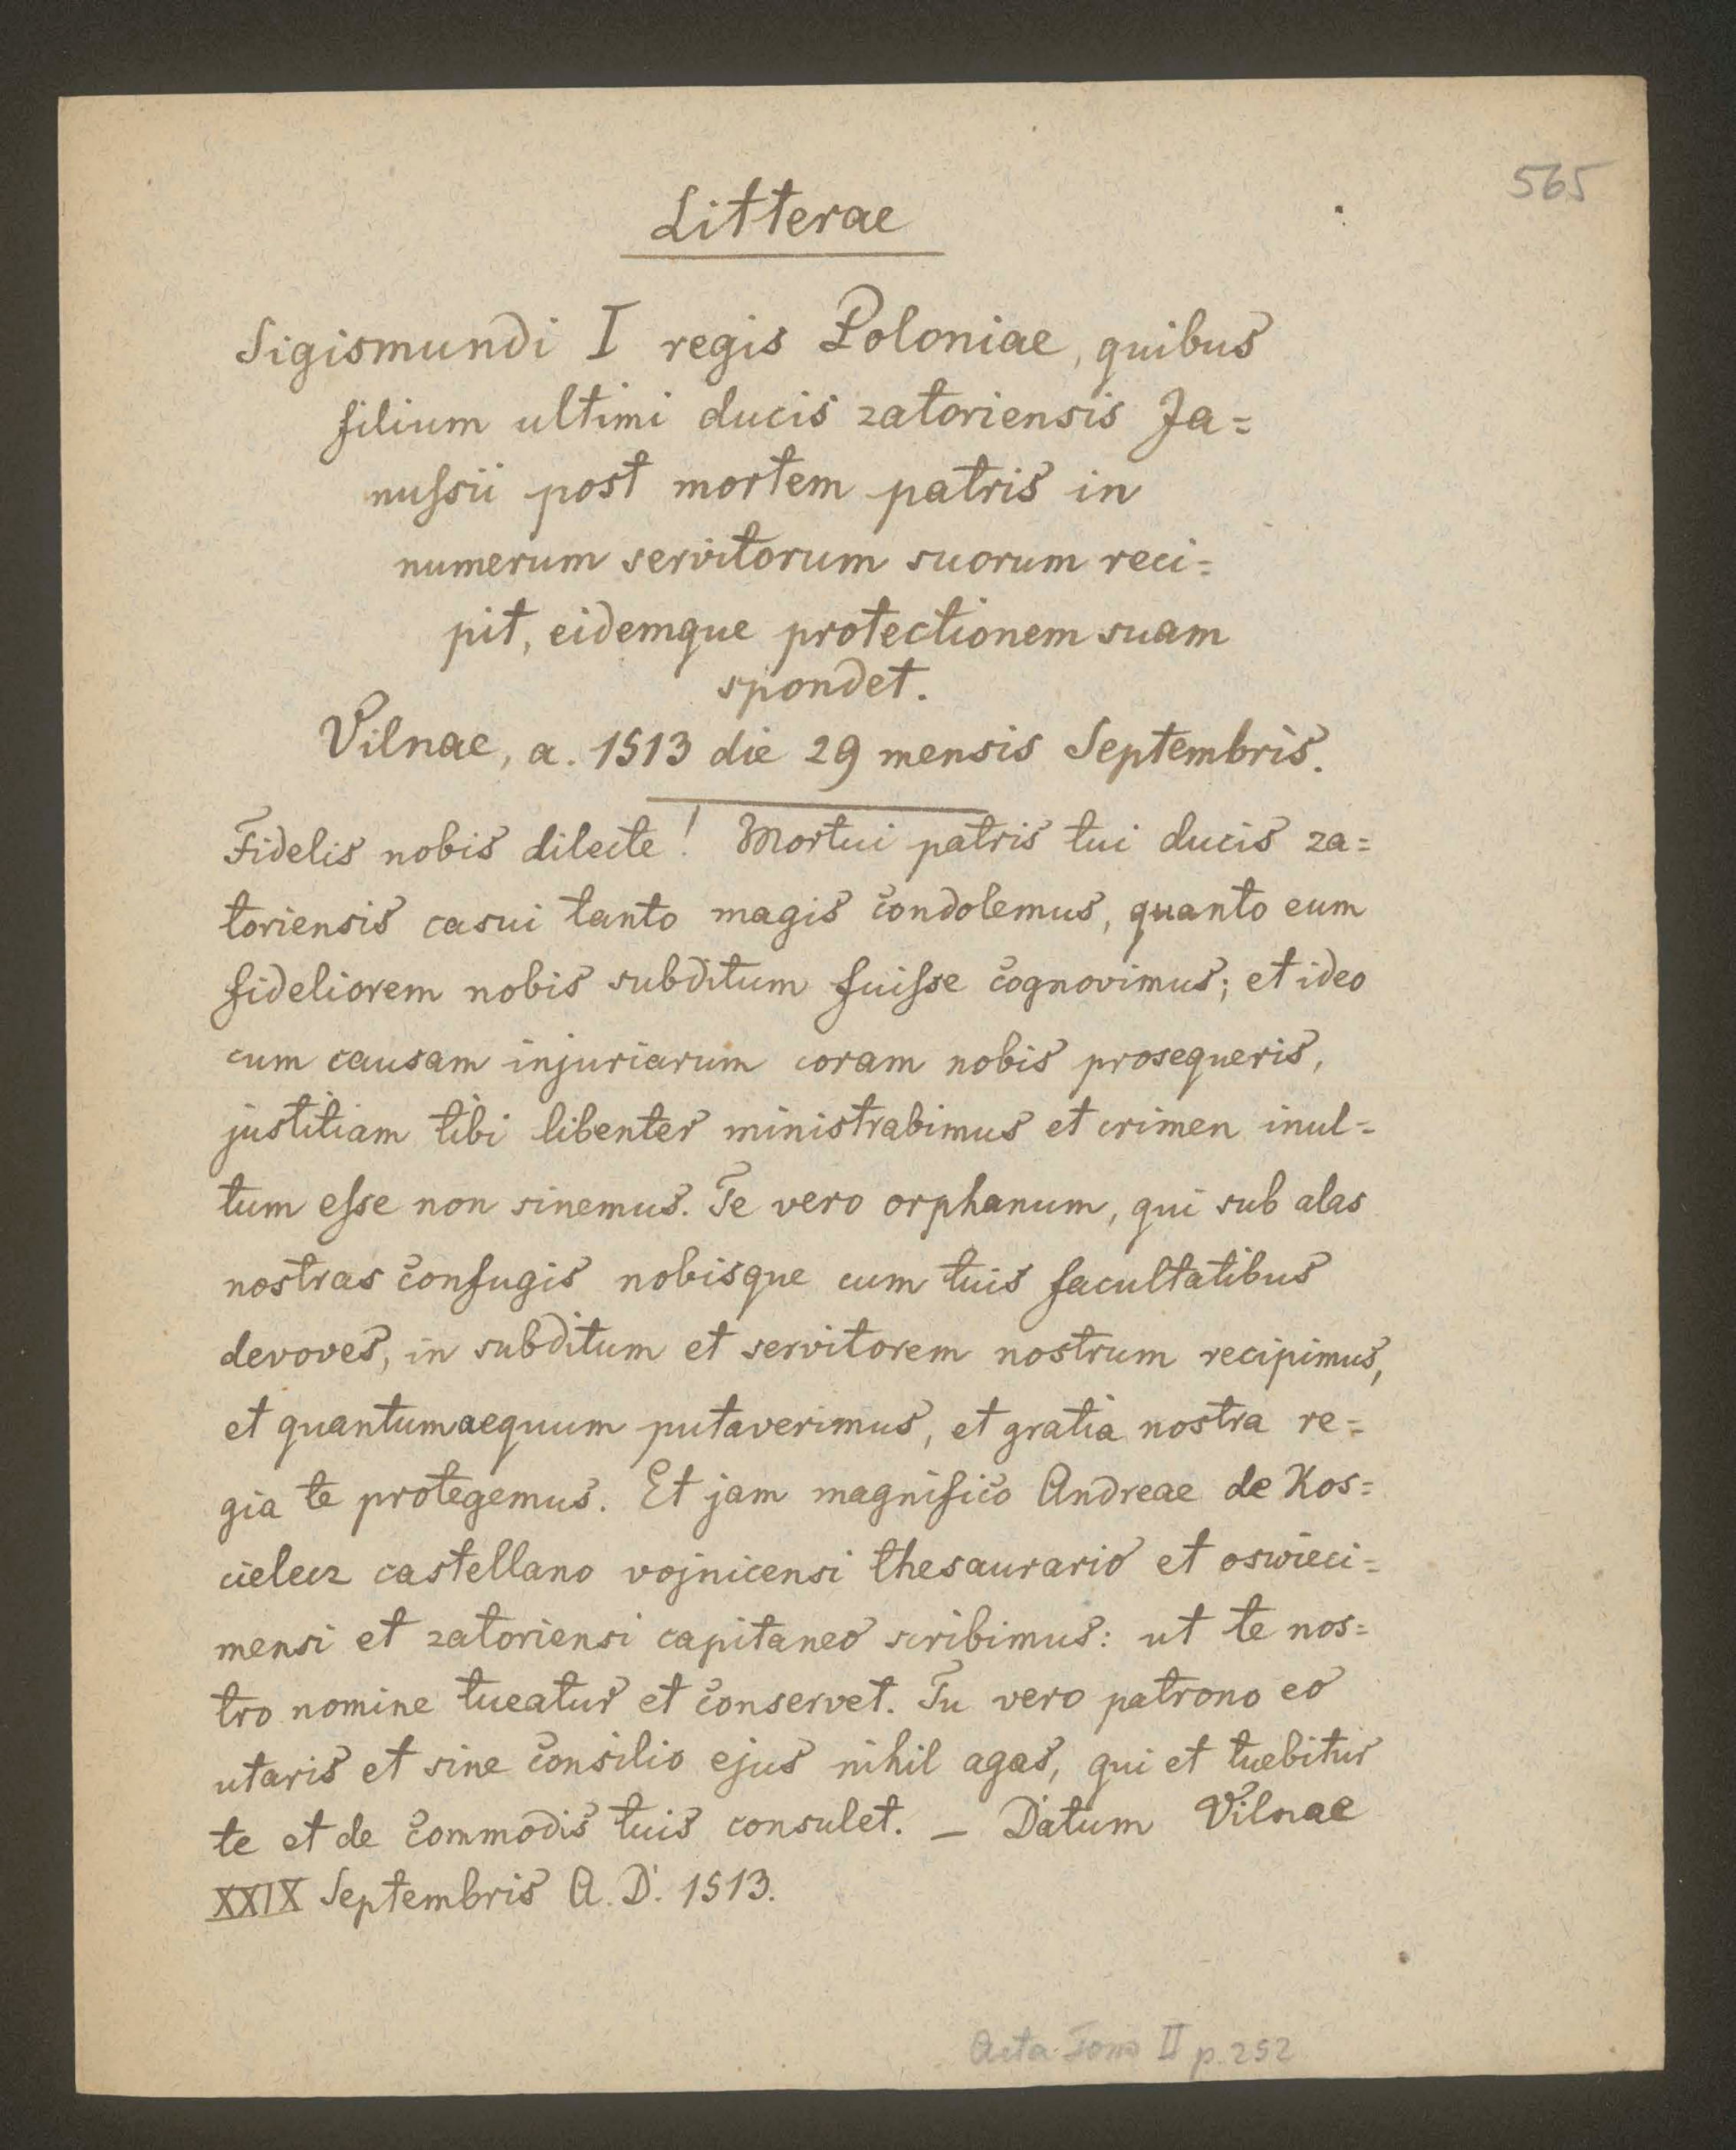 565
Litterae
Sigismundi I regis Poloniae, quibus
filium ultimi ducis zatoriensis Ja=
nussii post mortem patris in
numerum servitorum suorum reci=
pit, eidemque protectionem suam
spondet.
Vilnae, a. 1513 die 29 mensis Septembris.
Fidelis nobis dilecte! Mortui patris tui ducis za=
toriensis casui tanto magis condolemus, quanto eum
fideliorem nobis subditum fuisse cognovimus; et ideo
cum causam injuriarum coram nobis prosequeris,
justitiam tibi libenter ministrabimus et crimen inul=
tum esse non sinemus. Te vero orphanum, qui sub alas
nostras confugis nobisque cum tuis facultatibus
devoves, in subditum et servitorem nostrum recipimus,
et quantum aequum putaverimus, et gratia nostra re=
gia te protegemus. Et jam magnifico Andreae de Kos=
cielecz castellano vojnicensi thesaurario et oswieci=
mensi et zatoriensi capitaneo scribimus: ut te nos=
tro nomine tueatur et conservet. Tu vero patrono eo
utaris et sine consilio ejus nihil agas, qui et tuebitur
te et de commodis tuis consulet. — Datum Vilnae
XXIX Septembris A. D. 1513.
Acta Tomo II p. 252